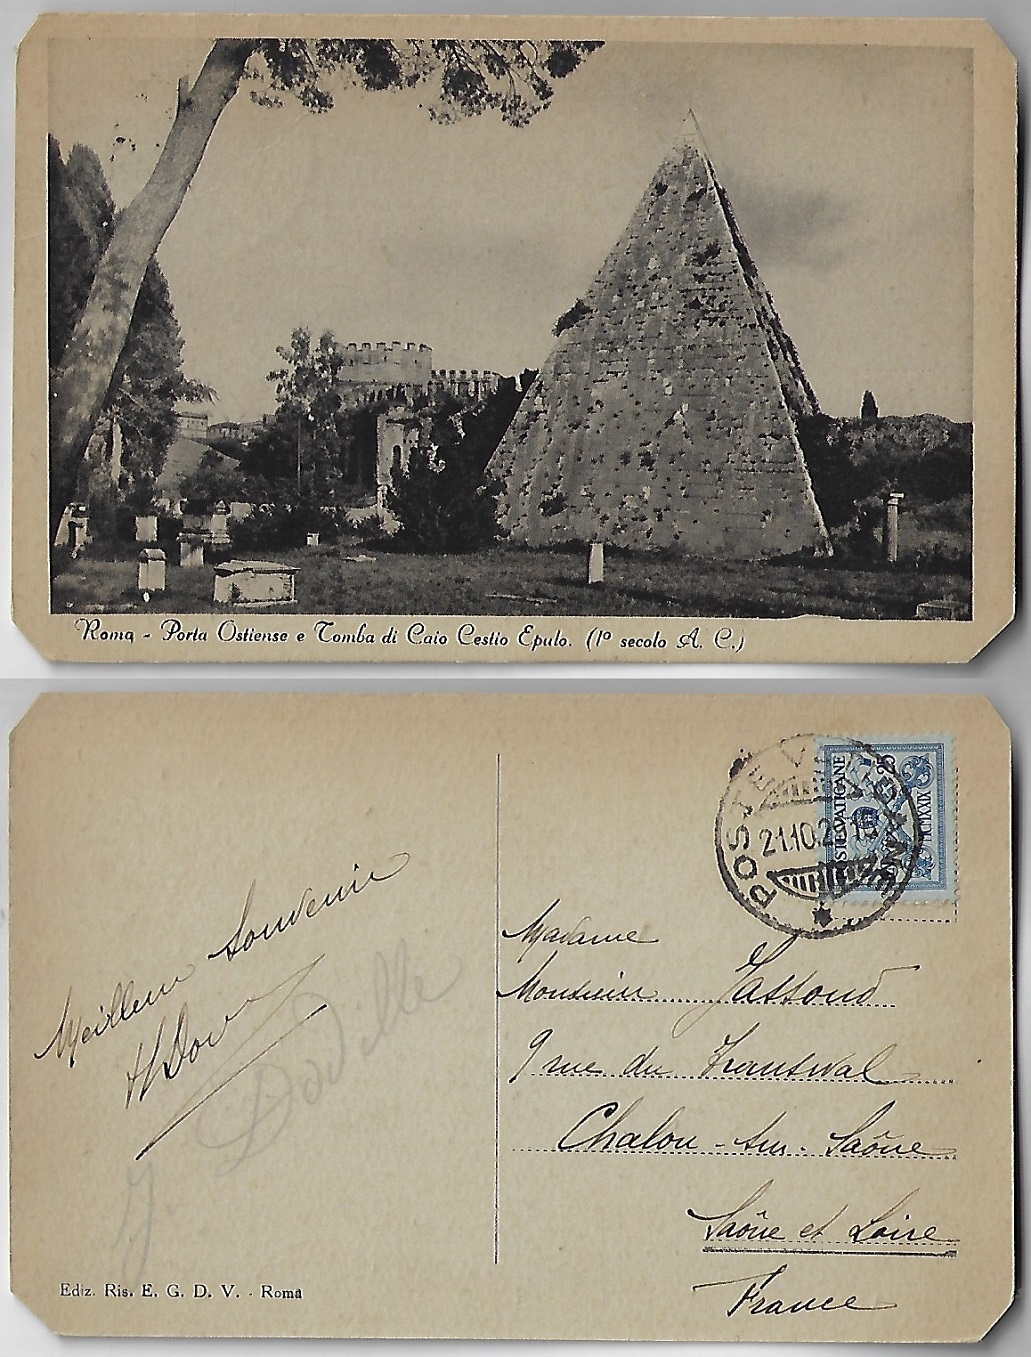 Roma - Porta Ostiense e Tomba di Caio Cestio Epulo. (1º secolo A. C.)
POSTE VATICANE
25
MCMXXIX
POSTE V
21.10.2
Meilleur Souvenir
HDov
J Dodille
Madame
Monsieur Jassoud
9 rue du Transwal
Chalon-sur-Saône
Saône et Loire
France
Ediz. Ris. E. G. D. V. - Roma